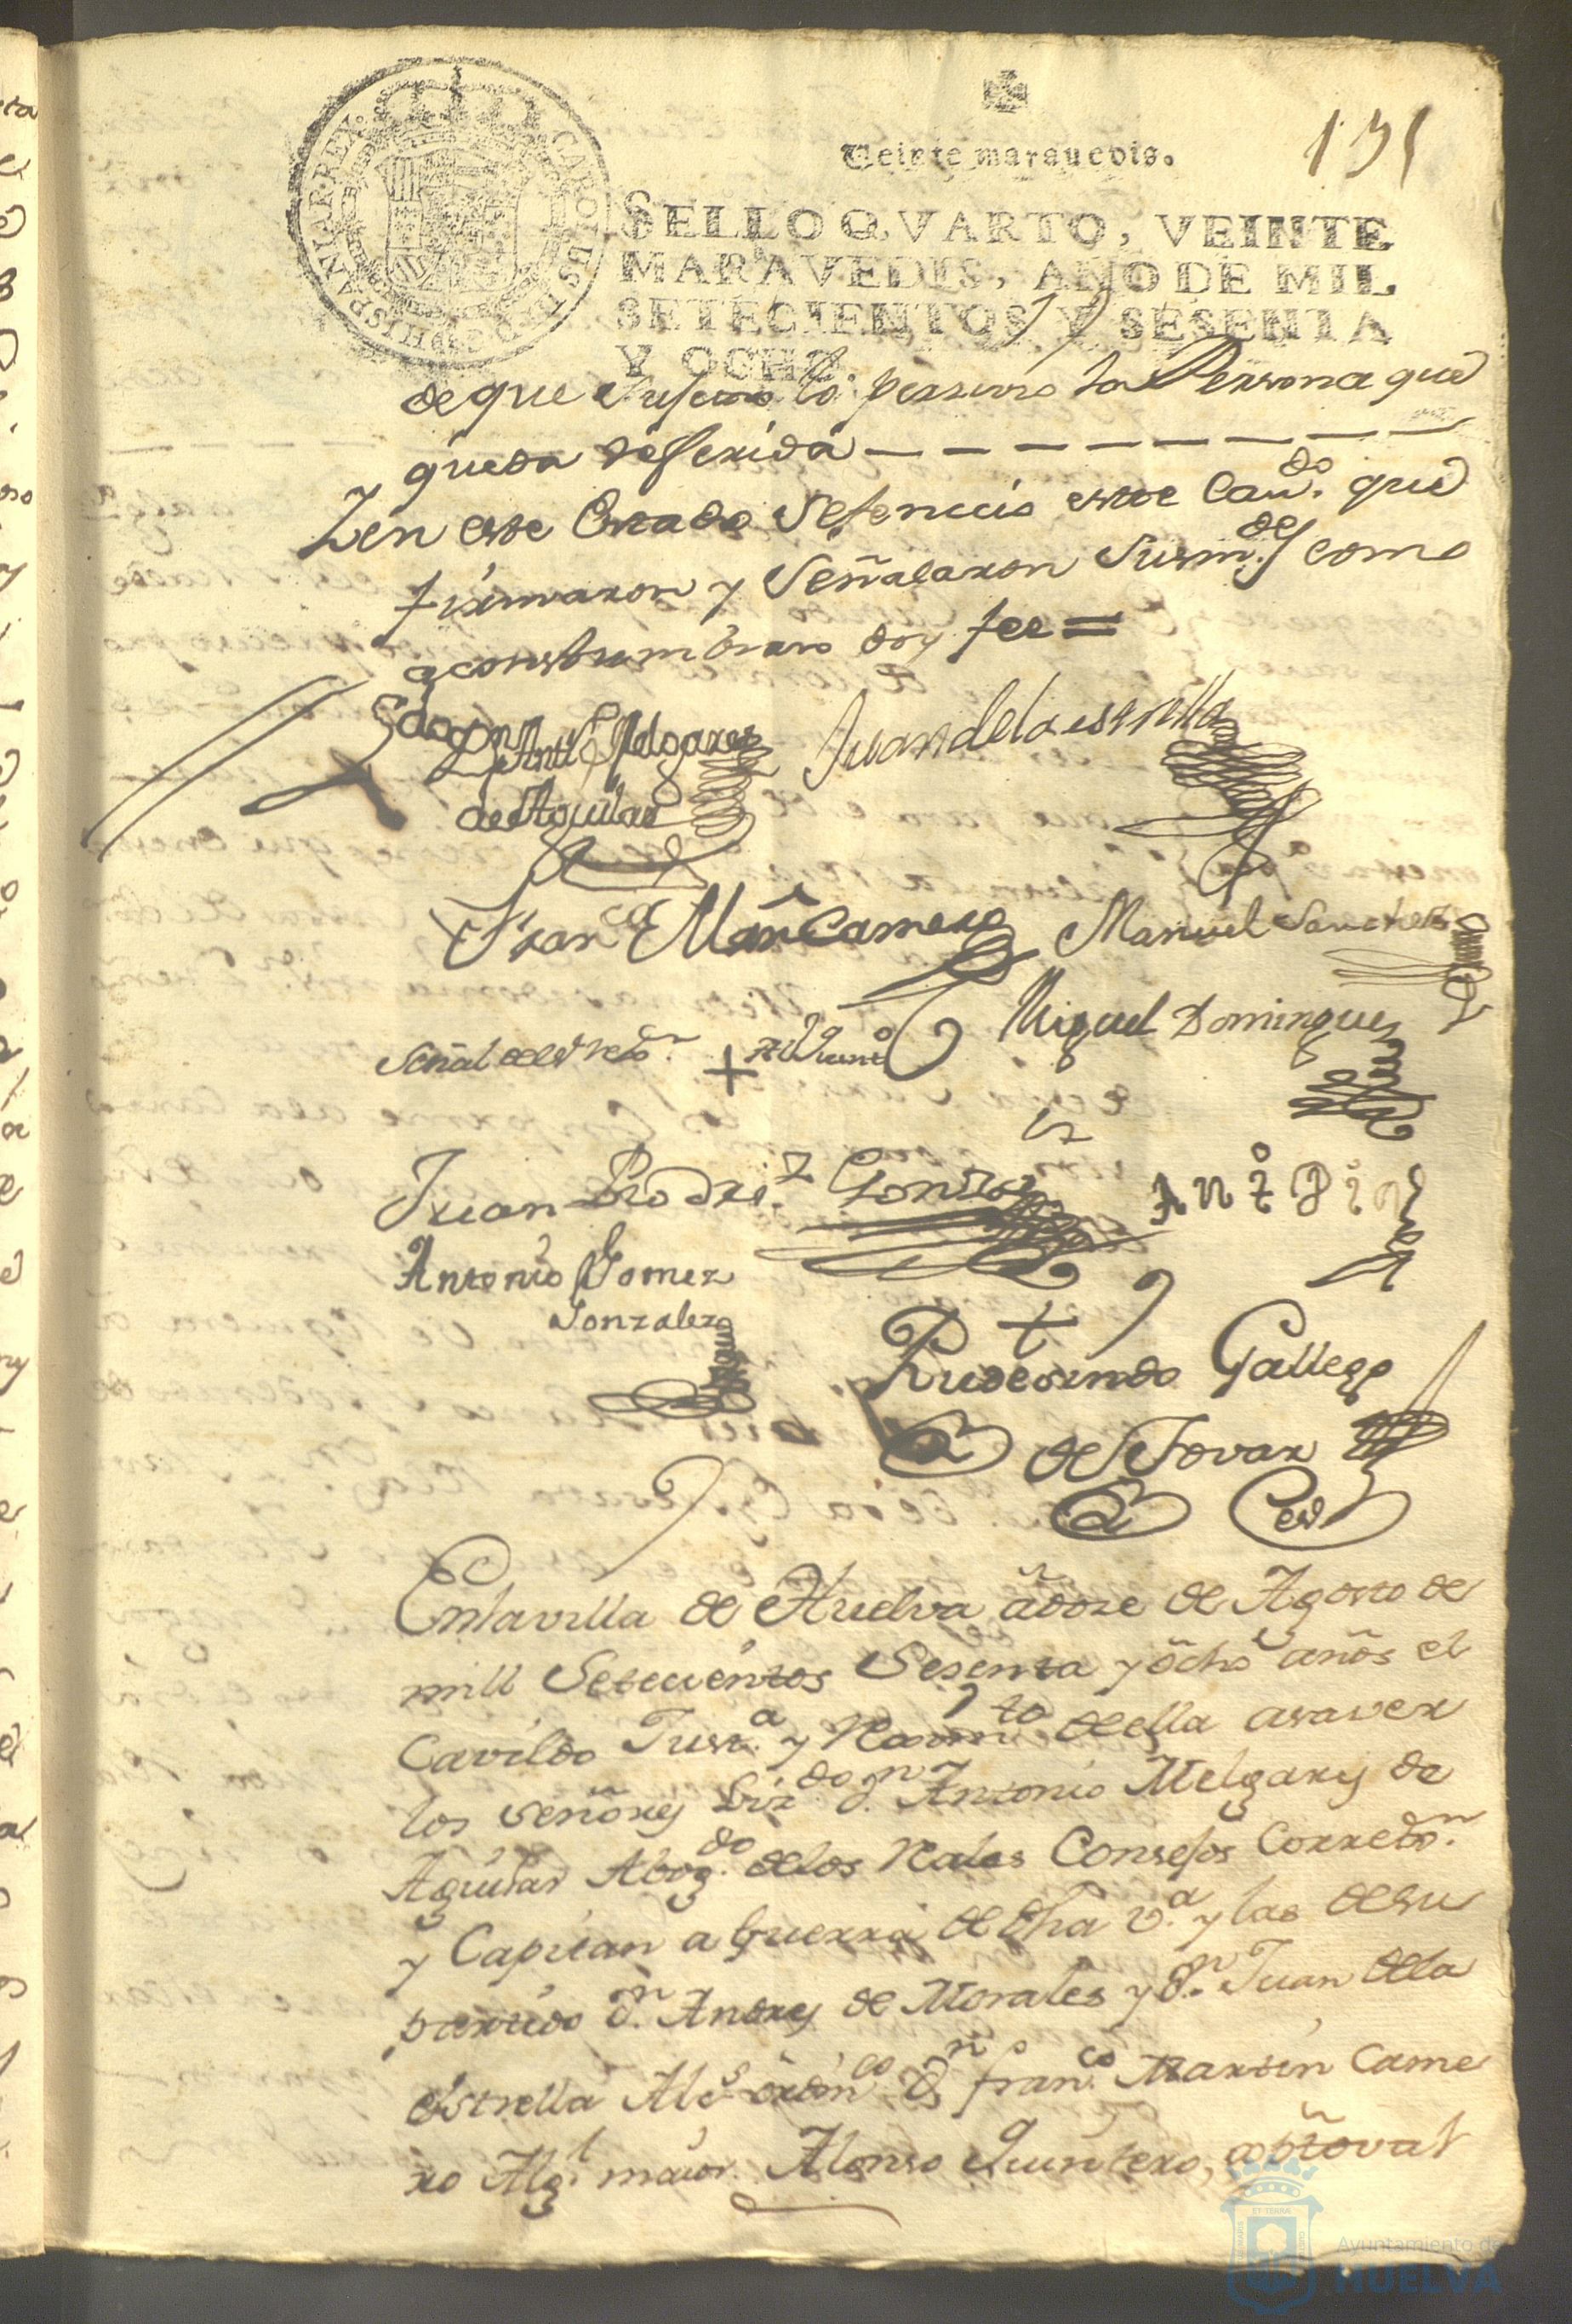 135
Veinte marauedis.
SELLO QVARTO, VEINTE
MARAVEDIS, AÑO DE MIL
SETECIENTOS Y SESENTA
Y OCHO.
CAROLUS III D G HISPANIAR REX
de que la Persona que
queda referida
Y en este Estado Sefenecio este Cau.do que
firmaron y Señalaron Susm.des como
acostumbran doy fee =
Ldo Dn Antt Melgarez
de Aguilar
Juan de la estrella
Fran.co Mãn Camero
Manuel Sanchez
Señal del Rexor
+
Quint.o
Miguel Domingues
Juan Rodri.z Gonz
Ant.o Pin
Antonio Gomez
Gonzalez
+
Rudesindo Gallego
de Tovar
Es.no
Enlavilla de Huelva ãdoze de Agosto de
mill Setecientos Sesenta y õcho años el
Cavildo Just.a y Rexim.to della asaver
los señores Liz.do D.n Antonio Melgarez de
Aguilar Abog.do delos Rales Consejos Corred.r
y Capitan a Guerra de dha v.a y las desu
partido d.n Andres de Morales y d.n Juan dela
estrella Al.s ordin.os Dn fran.co Martin Came
ro Alg.l maior. Alonso Quintero,
Ayuntamiento de
HUELVA